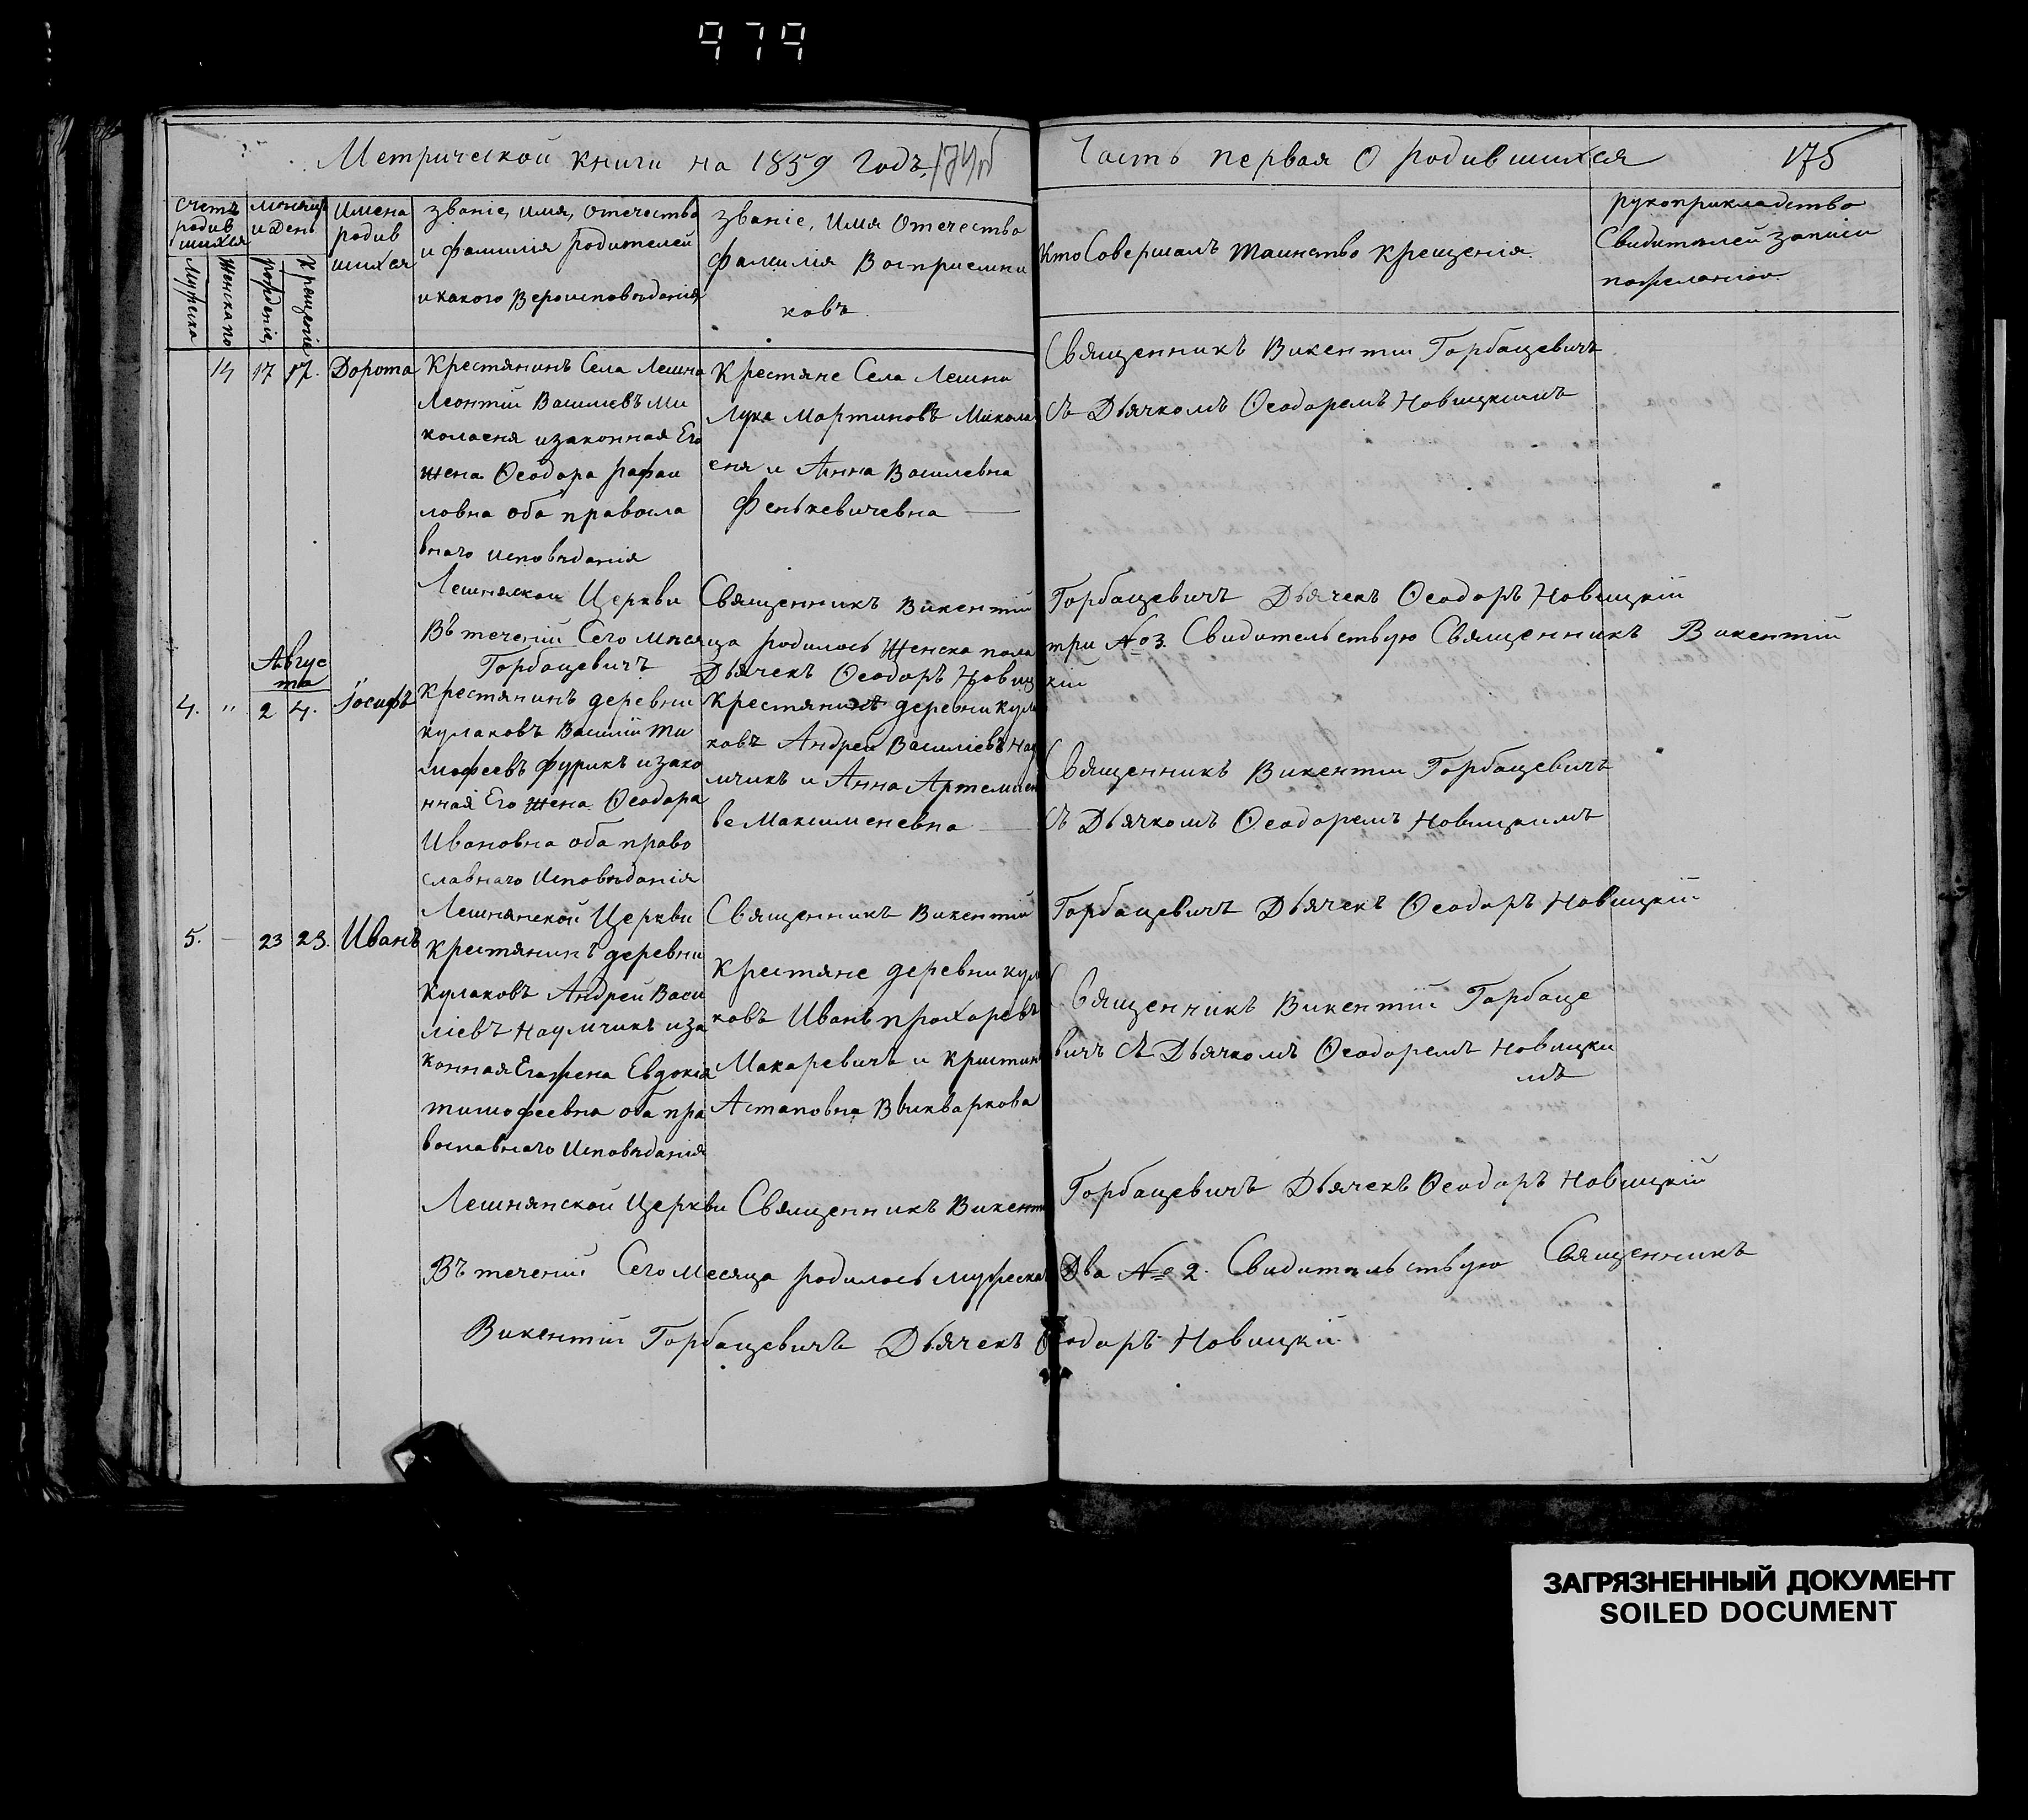 979
Метрической книги на 1859 годъ
Часть первая О родившихся
175
счетъ родив шихся
месяцъ и день
Мужеска
Женска по
рожденія
Крещенія
Имена родив шихся
званіе, имя, отечество
и фамилія родителей
и какого Вероисповѣданія
званіе, Имя Отечество
фамилія Восприемни
ковъ
Кто Совершалъ таинство крещенія
рукоприкладство
Свидителей записи
по желанію
14 17 17. Дорота
Крестянинъ Села Лешна
Леонтій Василевъ Ми
коласня и законная Его
жена Ѳеодора рафаи
ловна оба правосла
внаго исповѣданія
Крестяне Села Лешни
Лука Мартиновъ Микола
сня и Анна Василевна
Фенькевичевна
Священникъ Викентій Горбацевичъ
съ Дьячкомъ Ѳеодоремъ Новицкимъ
Лешнянской Церкви Священникъ Викентій Горбацевичъ Дьячекъ Ѳеодоръ Новицкій
Въ теченій Сего мѣсяца родилось женска пола три №3. Свидительствую Священникъ Викентій
Горбацевичъ Дьячекъ Ѳеодоръ Новицкій
Авгус
та
4. " 2 4. Іосифъ
крестянинъ деревни
кулаковъ Василій Ти
мофеевъ фурикъ и зако
нная Его жена Ѳеодора
Ивановна оба право
славнаго Исповѣданія
крестянинъ деревни кула
ковъ Андрей Василіевъ Нау
мчикъ и Анна Артемиен
ве Максименевна
Священникъ Викентій Горбацевичъ
съ Дьячкомъ Ѳеодоремъ Новицкимъ
Лешнянской Церкви Священникъ Викентій Горбацевичъ Дьячекъ Ѳеодоръ Новицкій
5. — 23 23. Иванъ
крестянинъ деревни
Кулаковъ Андрей Васи
ліевъ Наумчикъ и за
конная Его жена Евдокія
тимофеевна оба пра
вославнаго Исповѣданія
крестяне деревни кула
ковъ Иванъ прохоревъ
Макаревичъ и кристина
Астаповна
Священникъ Викентій Горбаце
вичъ съ Дьячкомъ Ѳеодоремъ Новицки
мъ
Лешнянской Церкви Священникъ Викентій Горбацевичъ Дьячекъ Ѳеодоръ Новицкій
Въ теченій Сего месяца родилось мужеска Два №2. Свидительствую Священникъ
Викентій Горбацевичъ Дьячекъ Ѳеодоръ Новицкій
ЗАГРЯЗНЕННЫЙ ДОКУМЕНТ
SOILED DOCUMENT